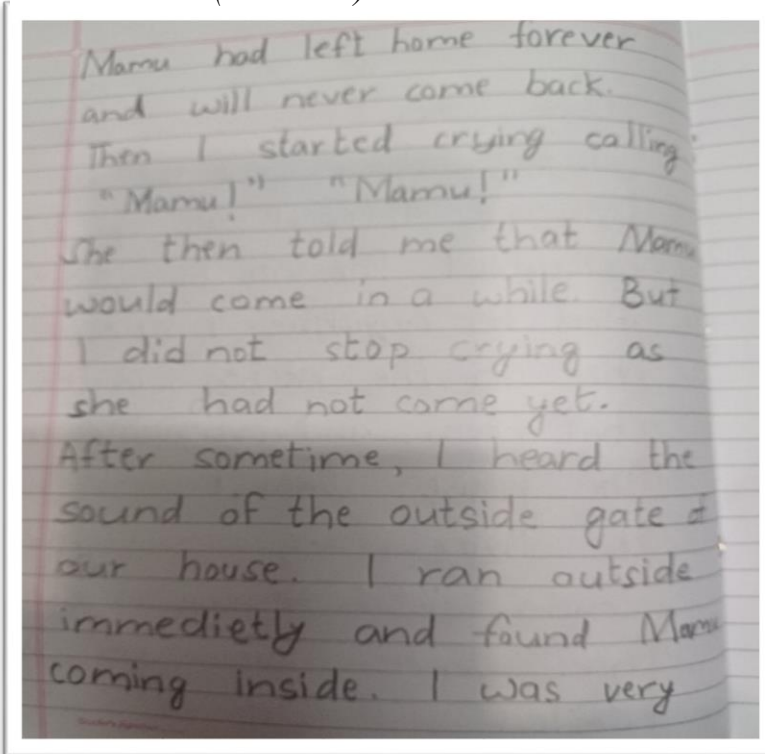 Mamu had left home forever
and will never come back.
Then I started crying calling
"Mamu!" "Mamu!"
She then told me that Mamu
would come in a while. But
I did not stop crying as
she had not come yet.
After sometime, I heard the
sound of the outside gate of
our house. I ran outside
immedietly and found Mamu
coming inside. I was very